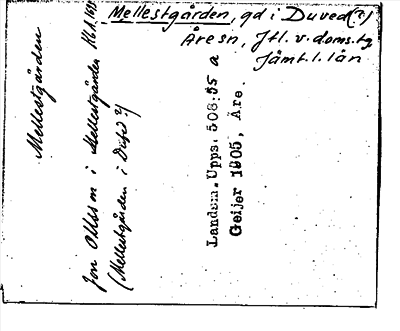 Mellestgården, gd i Duved(?)
Åre sn, Jtl. v. doms.tg
Jämt. l. län
Mellestgården
Jon Olsson i Mellestgården
(Mellestgården i Duved ?)
Landsm. Upps. 508:55 a
Geijer 1905, Åre.